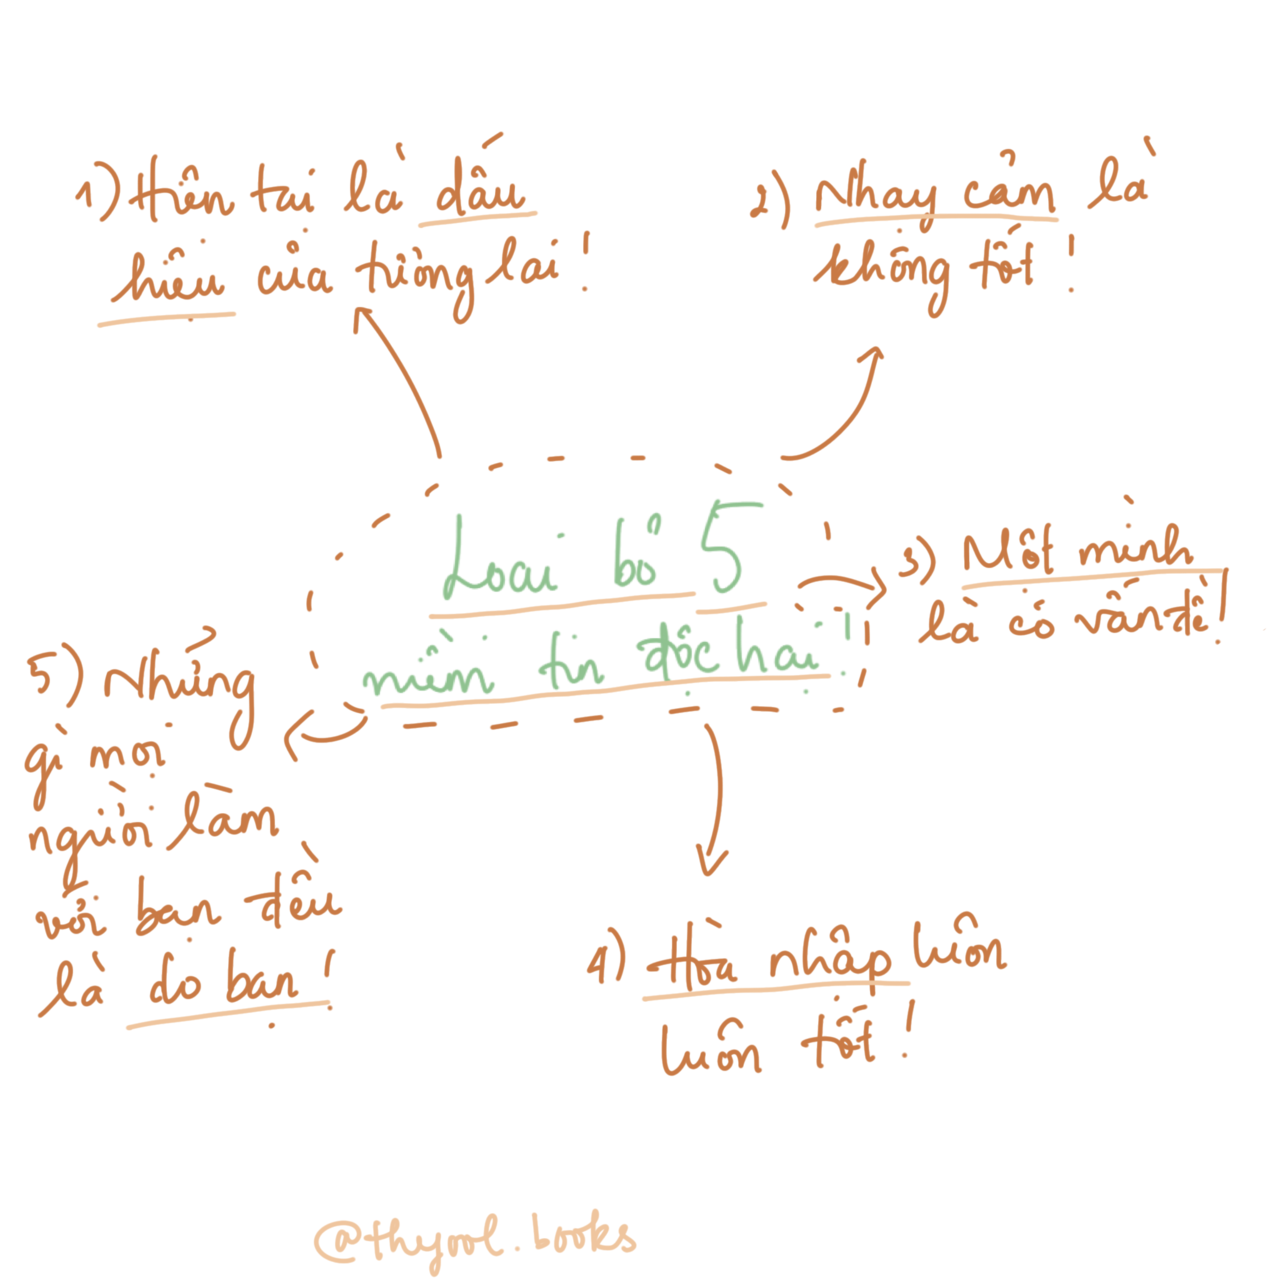 1) Hiện tại là dấu
hiệu của tương lai!
2) Nhạy cảm là
không tốt!
Loại bỏ 5
niềm tin độc hại!
3) Một mình
là có vấn đề!
5) Những
gì mọi
người làm
với bạn đều
là do bạn!
4) Hòa nhập luôn
luôn tốt!
@thyool.books